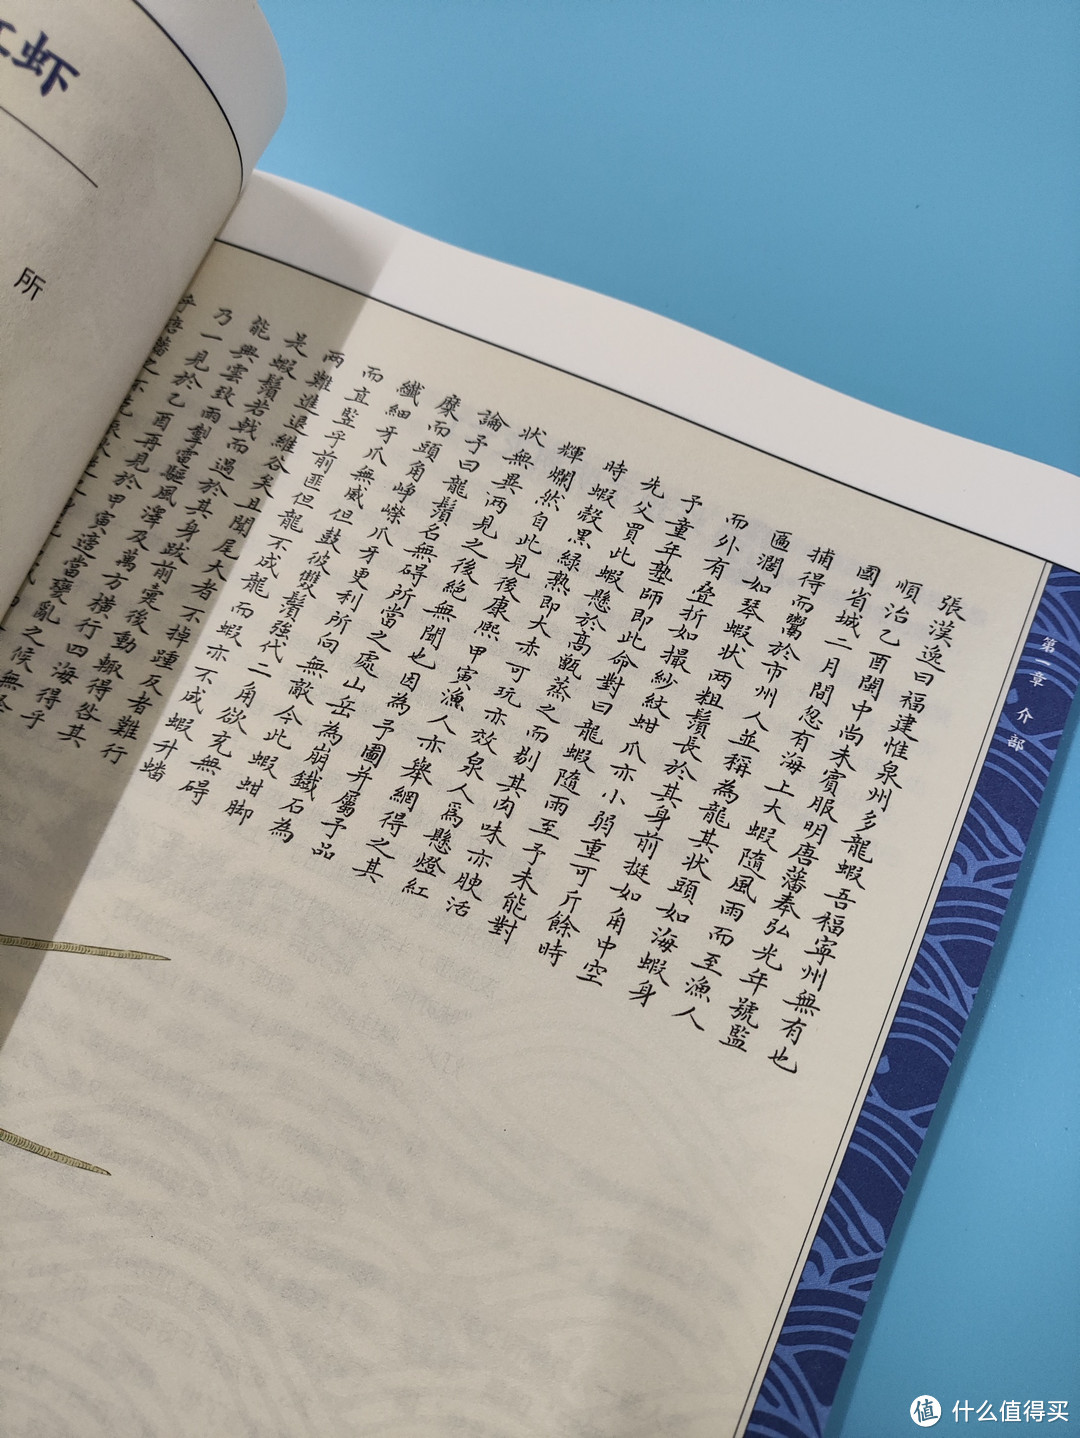 虾
所
張漢逸曰福建惟泉州多龍蝦吾福寧州無有也
順治乙酉閩中尚未賓服明唐藩奉弘光年號監
國省城二月間忽有海上大蝦隨風雨而至漁人
捕得而鬻於市州人並稱為龍其狀頭如海蝦身
匾濶如琴蝦狀两粗鬚長於其身前挺如角中空
而外有叠折如撮紗紋蚶爪亦小弱重可斤餘時
予童年塾師即此命對曰龍蝦隨雨至予未能對
先父買此蝦懸於高甑蒸之而剔其肉味亦腴活
時蝦殼黑綠熟即大赤可玩亦效泉人爲懸燈紅
輝爛然自此見後康熙甲寅漁人亦舉網得之其
狀無異两見之後絕無聞也因為予圖并屬予品
論予曰龍鬚名無碍所當之處山岳為崩鐵石為
糜而頭角崢嶸爪牙更利所向無敵今此蝦蚶脚
纖細牙爪無威但鼓彼雙鬚強代二角欲充無碍
而直竪乎前匪但龍不成龍而蝦亦不成蝦升蟠
两難進退維谷矣且聞尾大者不掉踵反者難行
是蝦鬚若戟而過於其身跋前疐後動輙得咎其
能興雲致雨掣電驅風澤及萬方橫行四海得乎
乃一見於乙酉再見於甲寅適當變亂之候無
第一章 介部
值 什么值得买